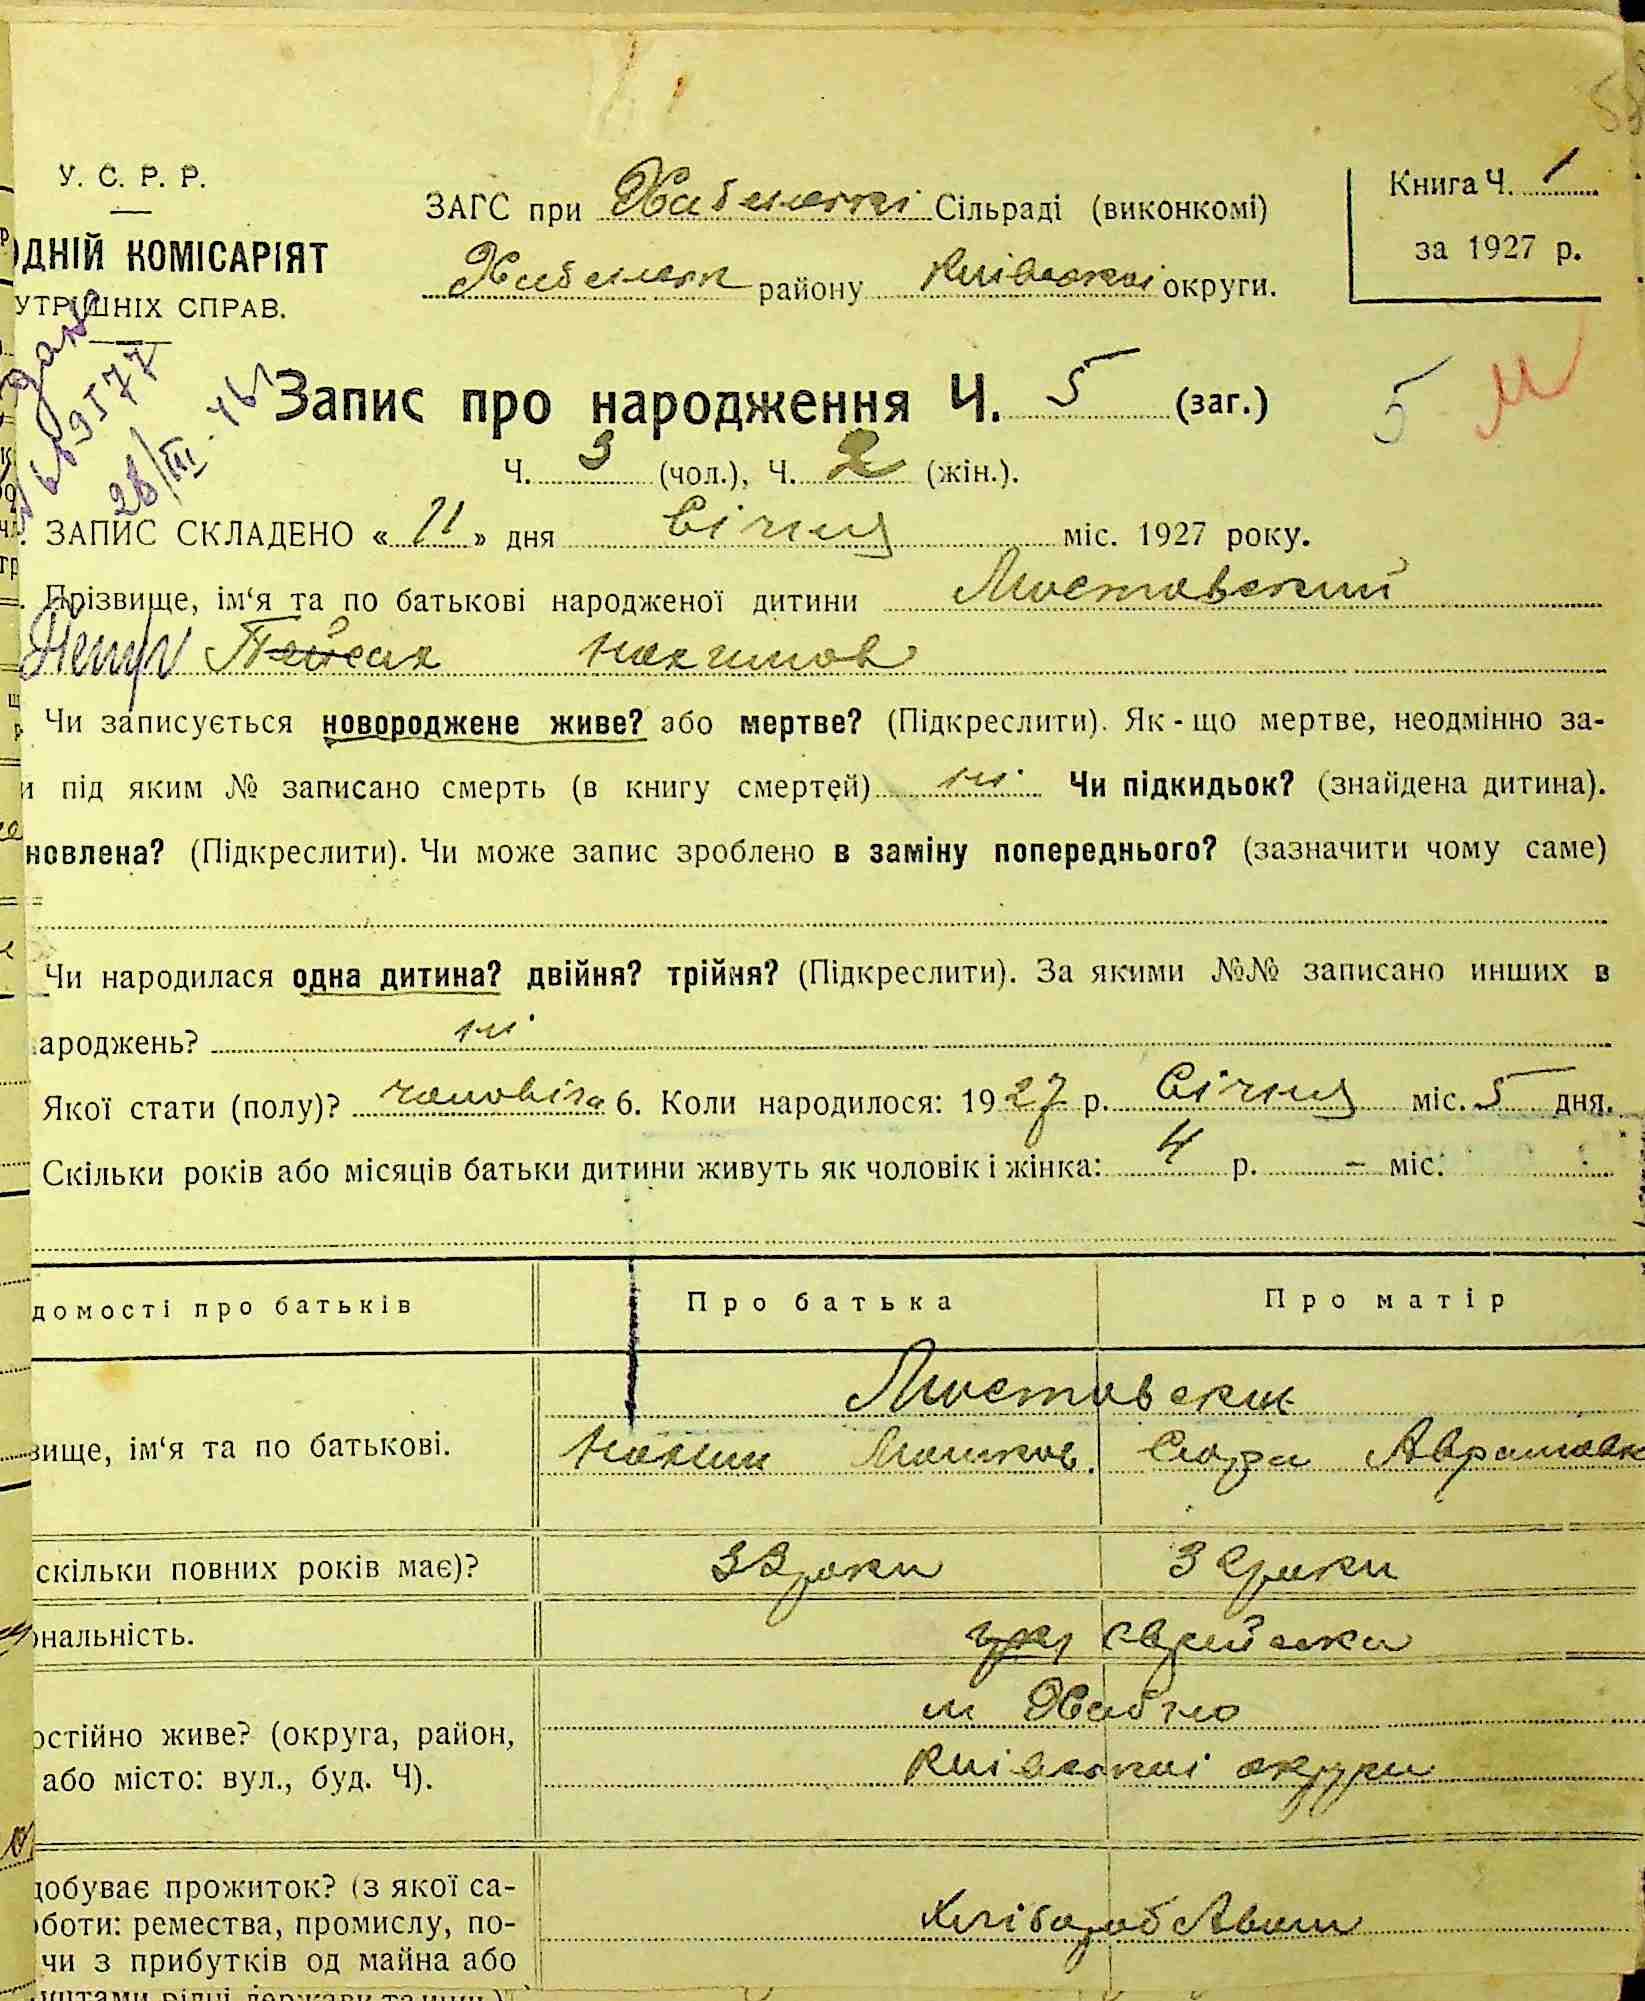 У. С. Р. Р.
ОДНІЙ КОМІСАРІЯТ
УТРІШНІХ СПРАВ.
ЗАГС при Хабенській Сільраді (виконкомі)
Хабенськ району Київської округи.
Книга Ч. 1
за 1927 р.
28/III
Запис про народження Ч. 5 (заг.)
5 М
Ч. 3 (чол.), Ч. 2 (жін.).
ЗАПИС СКЛАДЕНО « 11 » дня Січня міс. 1927 року.
Прізвище, ім'я та по батькові народженої дитини Мостовский
Пейсах Нахимов
Чи записується новороджене живе? або мертве? (Підкреслити). Як-що мертве, неодмінно за-
и під яким № записано смерть (в книгу смертей) ні. Чи підкидьок? (знайдена дитина).
новлена? (Підкреслити). Чи може запис зроблено в заміну попереднього? (зазначити чому саме)
Чи народилася одна дитина? двійня? трійня? (Підкреслити). За якими №№ записано инших в
ароджень? ні
Якої стати (полу)? чоловіча 6. Коли народилося: 1927 р. Січня міс. 5 дня.
Скільки років або місяців батьки дитини живуть як чоловік і жінка: 4 р. – міс.
домості про батьків Про батька Про матір
Мостовски
вище, ім'я та по батькові. Нахим Мошков. Сюра Аврамовн
скільки повних років має)? 32 роки 32 роки
ональність. укр єврейська
остійно живе? (округа, район, м Хабно
або місто: вул., буд. Ч). Київської округи
добуває прожиток? (з якої са-
оботи: ремества, промислу, по- Хлібороб
чи з прибутків од майна або